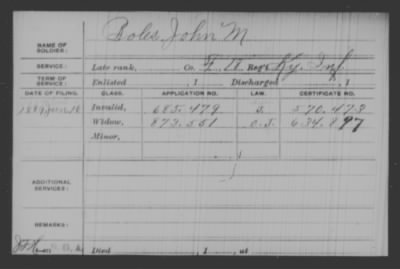 Boles, John M
NAME OF SOLDIER:
SERVICE: Late rank, Co. Reg't Ky. Inf.
TERM OF SERVICE: Enlisted , 1 Discharged , 1
DATE OF FILING. CLASS. APPLICATION NO. LAW. CERTIFICATE NO.
Invalid, 685.479 570.473
Widow, 873.551 634.897
Minor,
ADDITIONAL SERVICES:
REMARKS:
Died , 1 , at